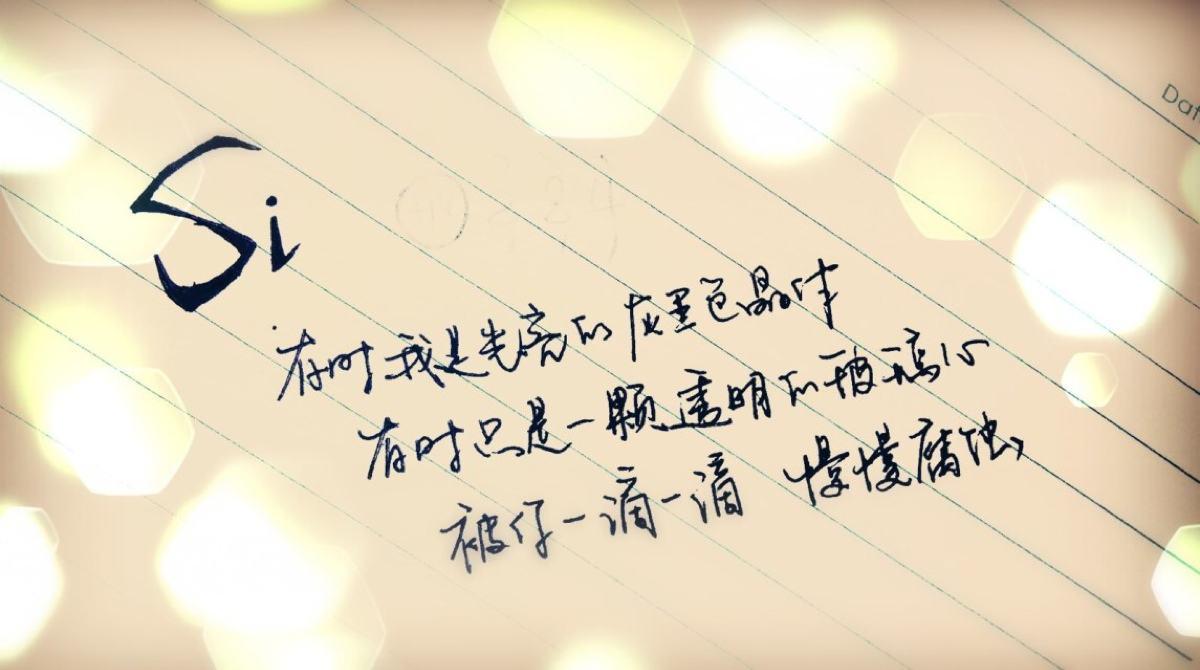 Dat
Si
有时我是光亮的灰黑色晶体
有时只是一颗透明的玻璃心
被你一滴一滴 慢慢腐蚀